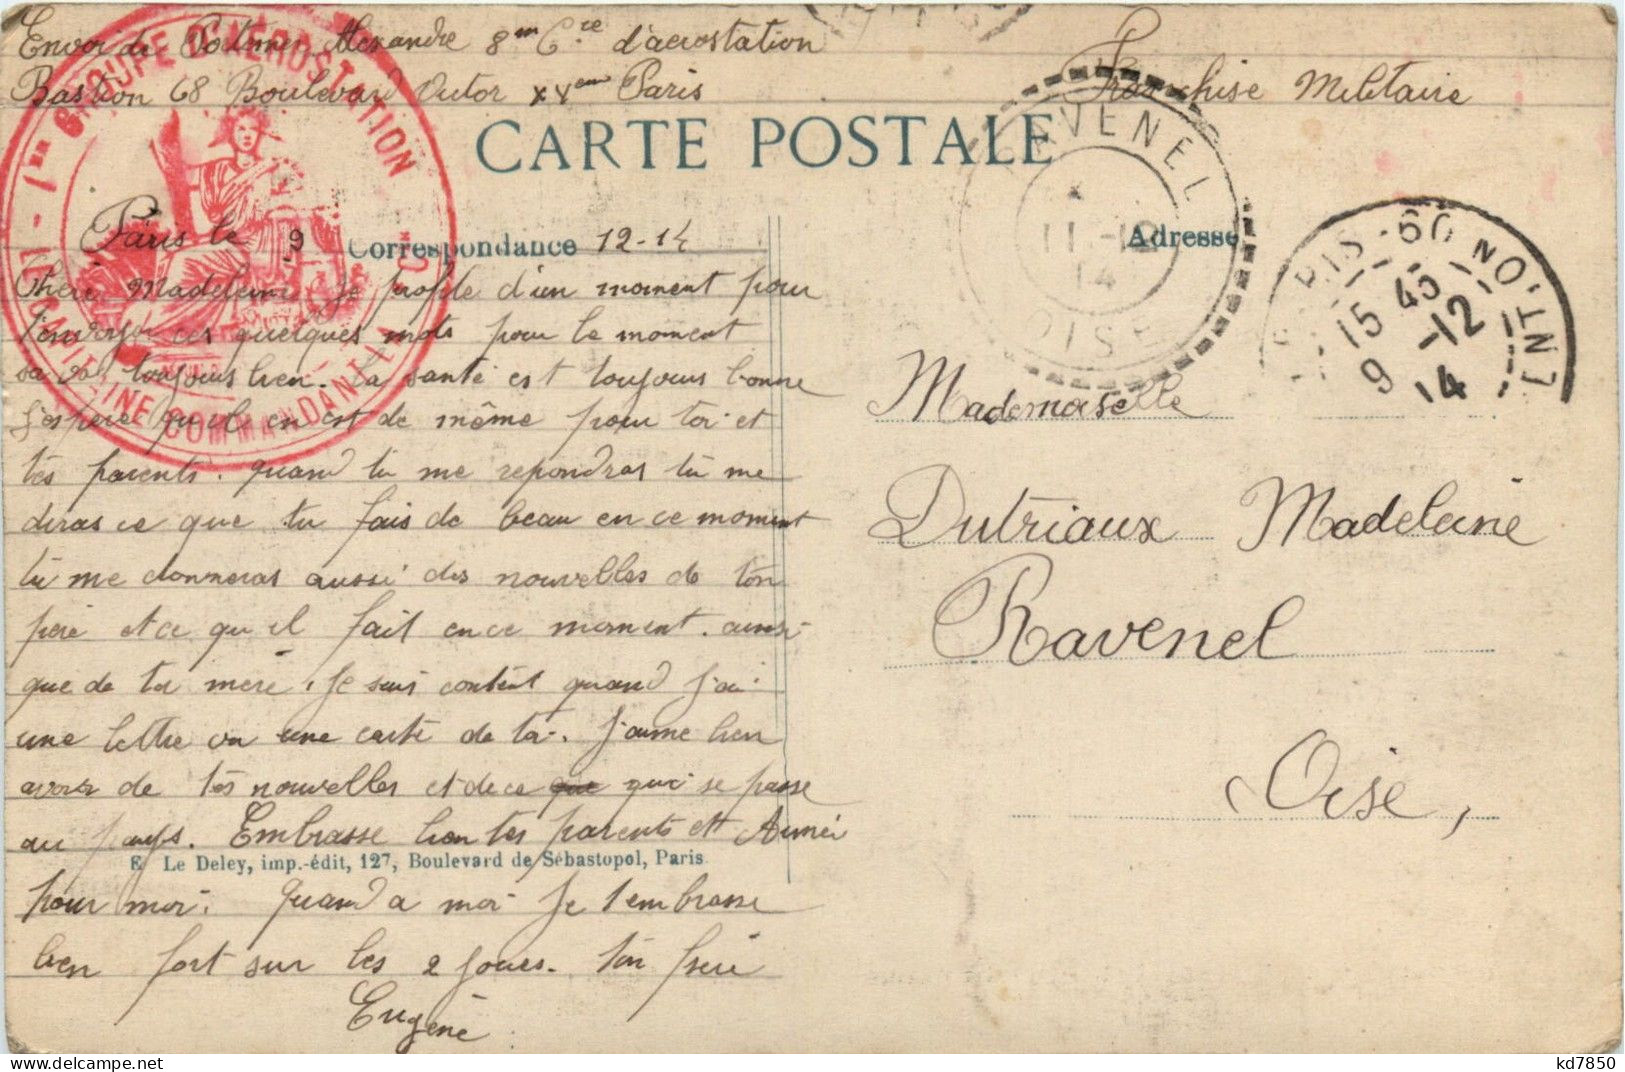 Envoi de Alexandre 8em Cie d'aerostation
Bastion 68 Boulevard Victor XVem Paris
Franchise Militaire
1er GROUPE D'AEROSTATION
CAPITAINE COMMANDANT
CARTE POSTALE
RAVENEL
11-12
14
OISE
PARIS-60
15 45
9 -12
14
Correspondance
Adresse
Paris le 9 12-14
Chere Madeleine Je profite d'un moment pour
t'envoyer ces quelques mots pour le moment
sa va toujours bien. la santé est toujours bonne
J'espere qu'il en est de même pour toi et
tes parents. quand tu me repondras tu me
diras ce que tu fais de beau en ce moment
tu me donneras aussi des nouvelles de ton
père et ce qu'il fait en ce moment. ainsi
que de ta mère. Je suis content quand J'ai
une lettre ou une carte de toi. J'aime bien
avoir de tes nouvelles et de ce que qui se passe
au pays. Embrasse bien tes parents et Aimée
E Le Deley, imp.-édit, 127, Boulevard de Sébastopol, Paris
pour moi. Quand a moi Je t'embrasse
bien fort sur les 2 joues. Ton frère
Eugène
Mademoiselle
Dutriaux Madeleine
Ravenel
Oise,
delcampe.net
kd7850